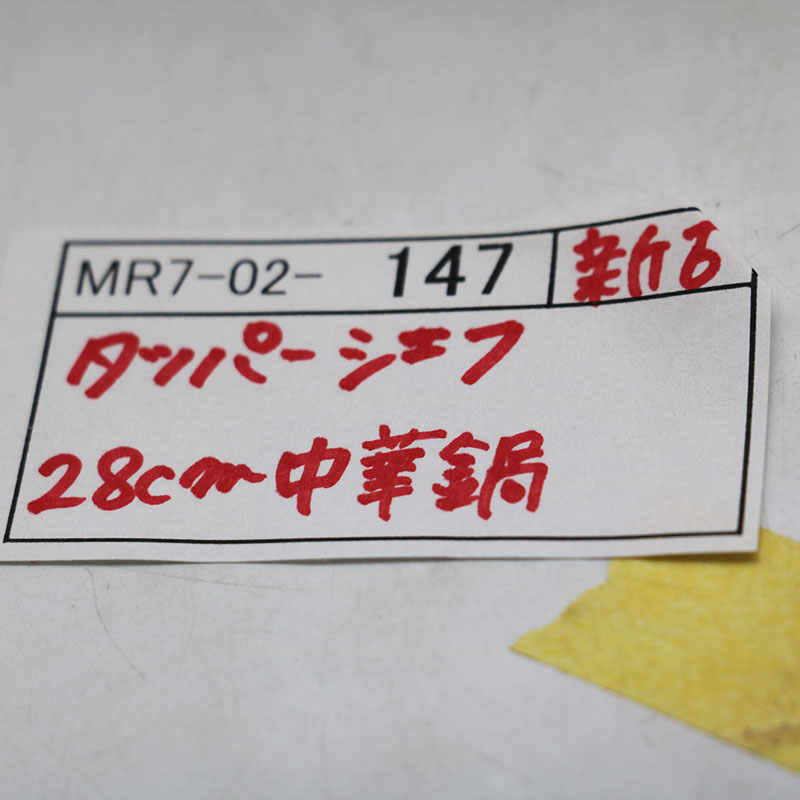 MR7-02- 147 新古
タッパーシェフ
28cm中華鍋